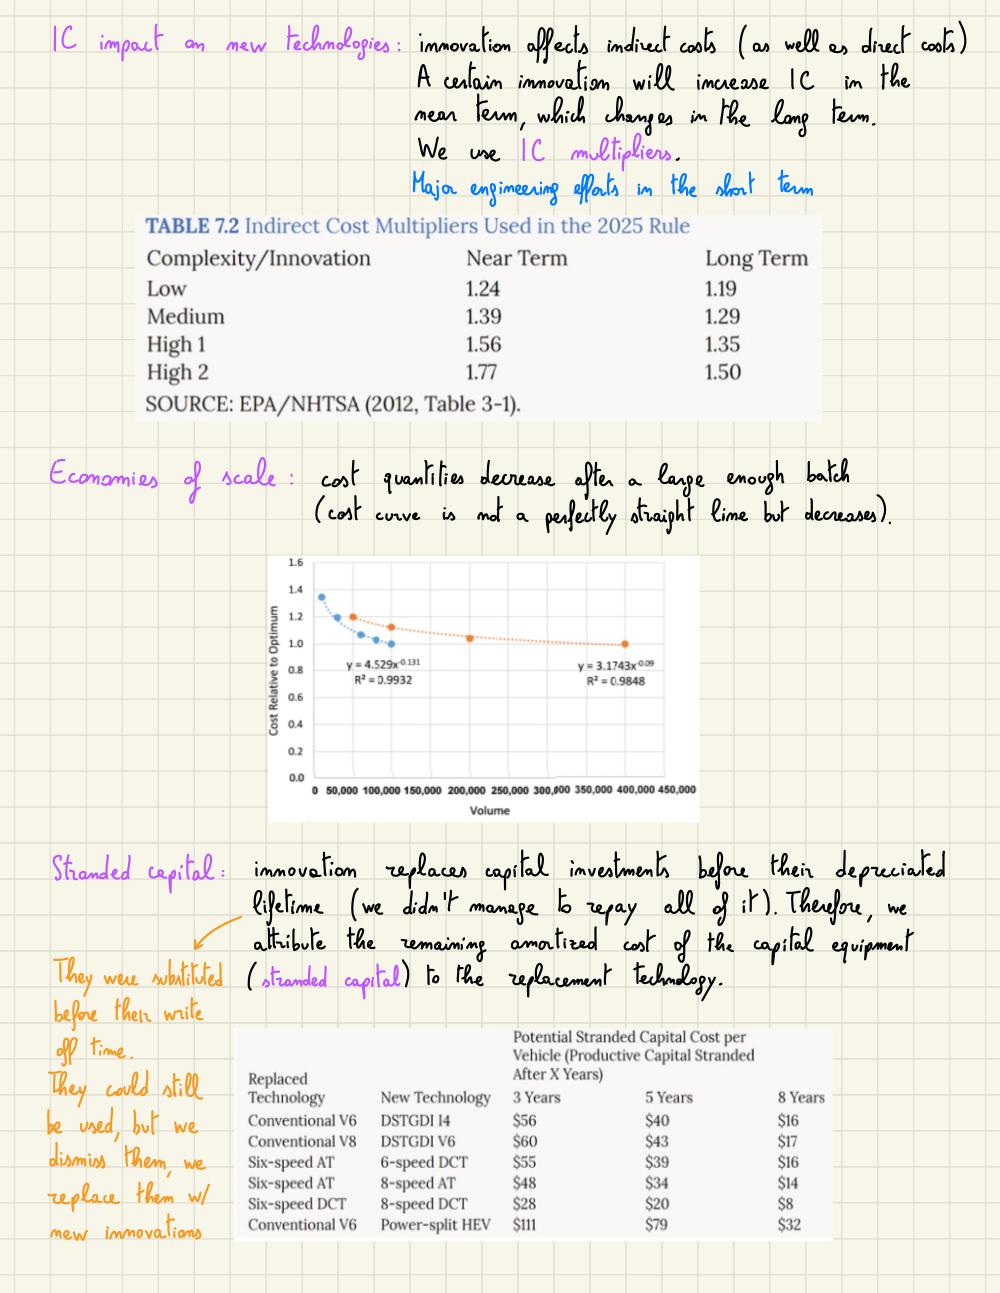 IC impact on new technologies: innovation affects indirect costs (as well as direct costs)
A certain innovation will increase IC in the
near term, which changes in the long term.
We use IC multipliers.
Major engineering efforts in the short term
TABLE 7.2 Indirect Cost Multipliers Used in the 2025 Rule
Complexity/Innovation Near Term Long Term
Low 1.24 1.19
Medium 1.39 1.29
High 1 1.56 1.35
High 2 1.77 1.50
SOURCE: EPA/NHTSA (2012, Table 3-1).
Economies of scale: cost quantities decrease after a large enough batch
(cost curve is not a perfectly straight line but decreases).
Cost Relative to Optimum
1.6
1.4
1.2
1.0
0.8
0.6
0.4
0.2
0.0
y = 4.529x^-0.131
R² = 0.9932
y = 3.1743x^-0.09
R² = 0.9848
0 50,000 100,000 150,000 200,000 250,000 300,000 350,000 400,000 450,000
Volume
Stranded capital: innovation replaces capital investments before their depreciated
lifetime (we didn't manage to repay all of it). Therefore, we
attribute the remaining amortized cost of the capital equipment
(stranded capital) to the replacement technology.
They were substituted
before their write
off time.
They could still
be used, but we
dismiss them, we
replace them w/
new innovations
Potential Stranded Capital Cost per
Vehicle (Productive Capital Stranded
After X Years)
Replaced
Technology New Technology 3 Years 5 Years 8 Years
Conventional V6 DSTGDI I4 $56 $40 $16
Conventional V8 DSTGDI V6 $60 $43 $17
Six-speed AT 6-speed DCT $55 $39 $16
Six-speed AT 8-speed AT $48 $34 $14
Six-speed DCT 8-speed DCT $28 $20 $8
Conventional V6 Power-split HEV $111 $79 $32